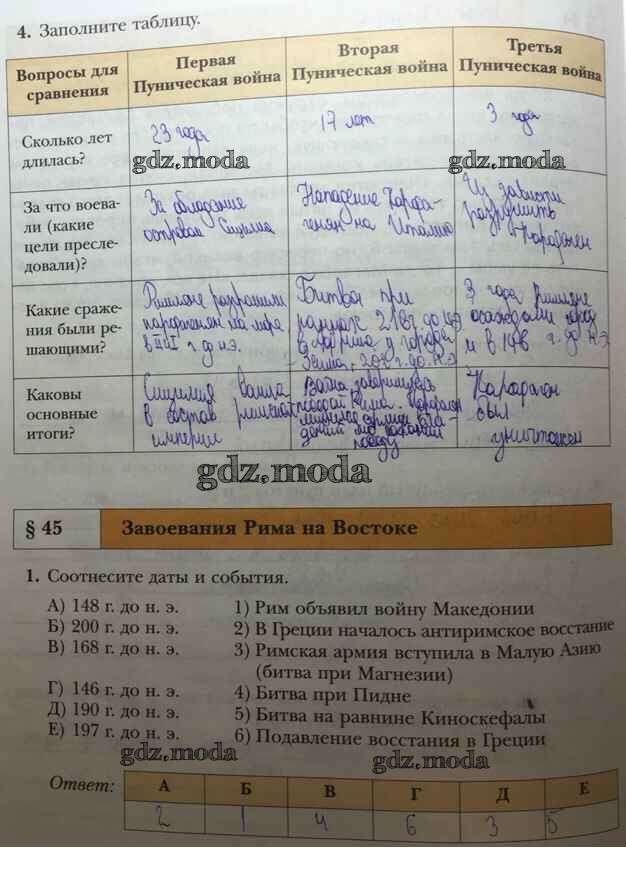 4. Заполните таблицу.
Вопросы для
сравнения
Первая
Пуническая война
Вторая
Пуническая война
Третья
Пуническая война
Сколько лет
длилась?
23 года
17 лет
3 года
gdz.moda
gdz.moda
За что воева-
ли (какие
цели пресле-
довали)?
За обладание
островом Сицилия
Нападение Карфа-
генян на Италию
Из зависти
разрушить
Карфаген
Какие сраже-
ния были ре-
шающими?
Римляне разгромили
карфагенян на море
в г. до н.э.
Битва при
г. до н.э.
у города
г. до н.э.
3 года Римляне
осаждали город
и в 146 г. до н.э.
Каковы
основные
итоги?
Сицилия вошла
в состав римской
империи
Война завершилась
победой Рима. Карфаген
Карфаген
был
уничтожен
gdz.moda
§ 45
Завоевания Рима на Востоке
1. Соотнесите даты и события.
А) 148 г. до н. э.
Б) 200 г. до н. э.
В) 168 г. до н. э.
Г) 146 г. до н. э.
Д) 190 г. до н. э.
Е) 197 г. до н. э.
1) Рим объявил войну Македонии
2) В Греции началось антиримское восстание
3) Римская армия вступила в Малую Азию
(битва при Магнезии)
4) Битва при Пидне
5) Битва на равнине Киноскефалы
6) Подавление восстания в Греции
gdz.moda
gdz.moda
Ответ:
А Б В Г Д Е
2 1 4 6 3 5